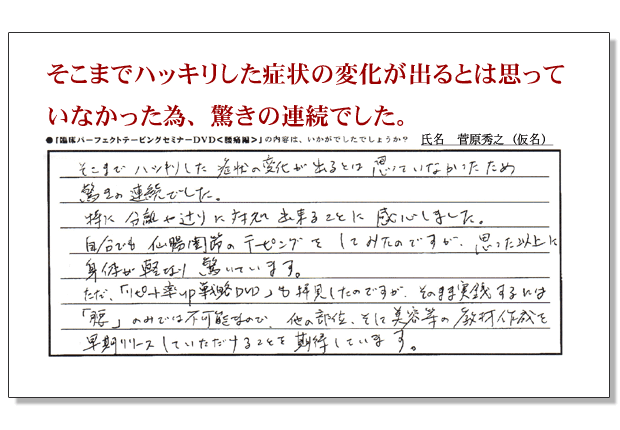 そこまでハッキリした症状の変化が出るとは思って
いなかった為、驚きの連続でした。
●「臨床パーフェクトテーピングセミナーDVD＜腰痛編＞」の内容は、いかがでしたでしょうか？ 氏名 菅原秀之（仮名）
そこまでハッキリした症状の変化が出るとは思っていなかったため
驚きの連続でした。
特に分離や辷りに対応出来ることに感心しました。
自分でも仙腸関節のテーピングをしてみたのですが、思った以上に
身体が軽くなり驚いています。
ただ、「リピート率up戦略DVD」も拝見したのですが、そのまま実践するには
「腰」のみでは不可能なので、他の部位、そして美容等の教材作成を
早期リリースしていただけることを期待しています。